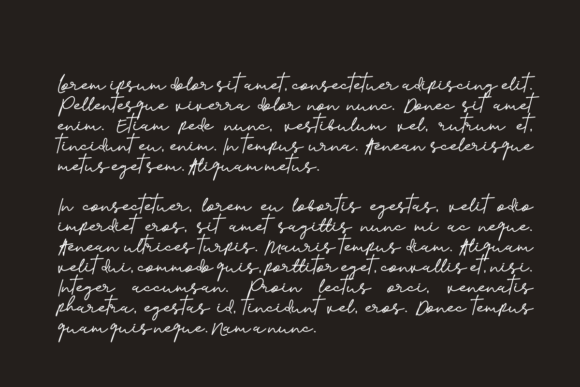 Lorem ipsum dolor sit amet, consectetuer adipiscing elit.
Pellentesque viverra dolor non nunc. Donec sit amet
enim. Etiam pede nunc, vestibulum vel, rutrum et,
tincidunt eu, enim. In tempus urna. Aenean scelerisque
metus eget sem. Aliquam metus.
In consectetuer, lorem eu lobortis egestas, velit odio
imperdiet eros, sit amet sagittis nunc mi ac neque.
Aenean ultrices turpis. Mauris tempus diam. Aliquam
velit dui, commodo quis, porttitor eget, convallis et, nisi.
Integer accumsan. Proin lectus orci, venenatis
pharetra, egestas id, tincidunt vel, eros. Donec tempus
quam quis neque. Nam a nunc.